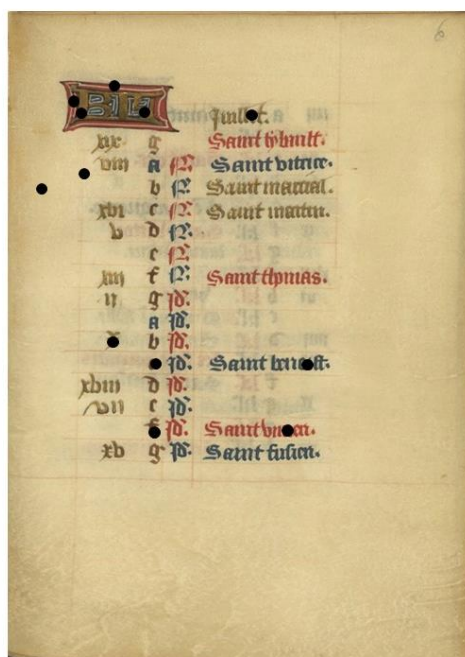 6
Juillet.
xix g Saint thbault.
viii A N. Saint vitrice.
b N. Saint marcial.
xvi c N. Saint martin.
v d N.
e N.
xiii f N. Saint thomas.
ii g Id.
A Id.
b Id.
Id. Saint
xviii d Id.
vii e Id.
Id. Saint
xv g Id. Saint fusien.